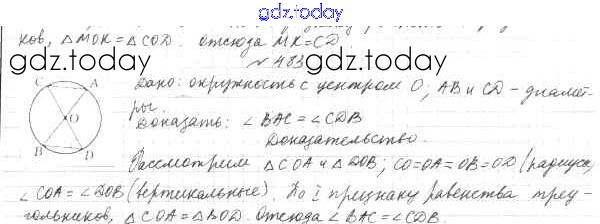 gdz.today
ков, △MOK = △COD. отсюда MK = CD.
№ 483
gdz.today gdz.today
C A
O
B D
Дано: окружность с центром O; AB и CD - диамет-
ры.
Доказать: ∠BAC = ∠CDB
Доказательство.
Рассмотрим △COA и △DOB; CO=OA=OB=OD (радиусы)
∠COA = ∠DOB (вертикальные). По I признаку равенства треу-
гольников, △COA = △BOD. Отсюда ∠BAC = ∠CDB.